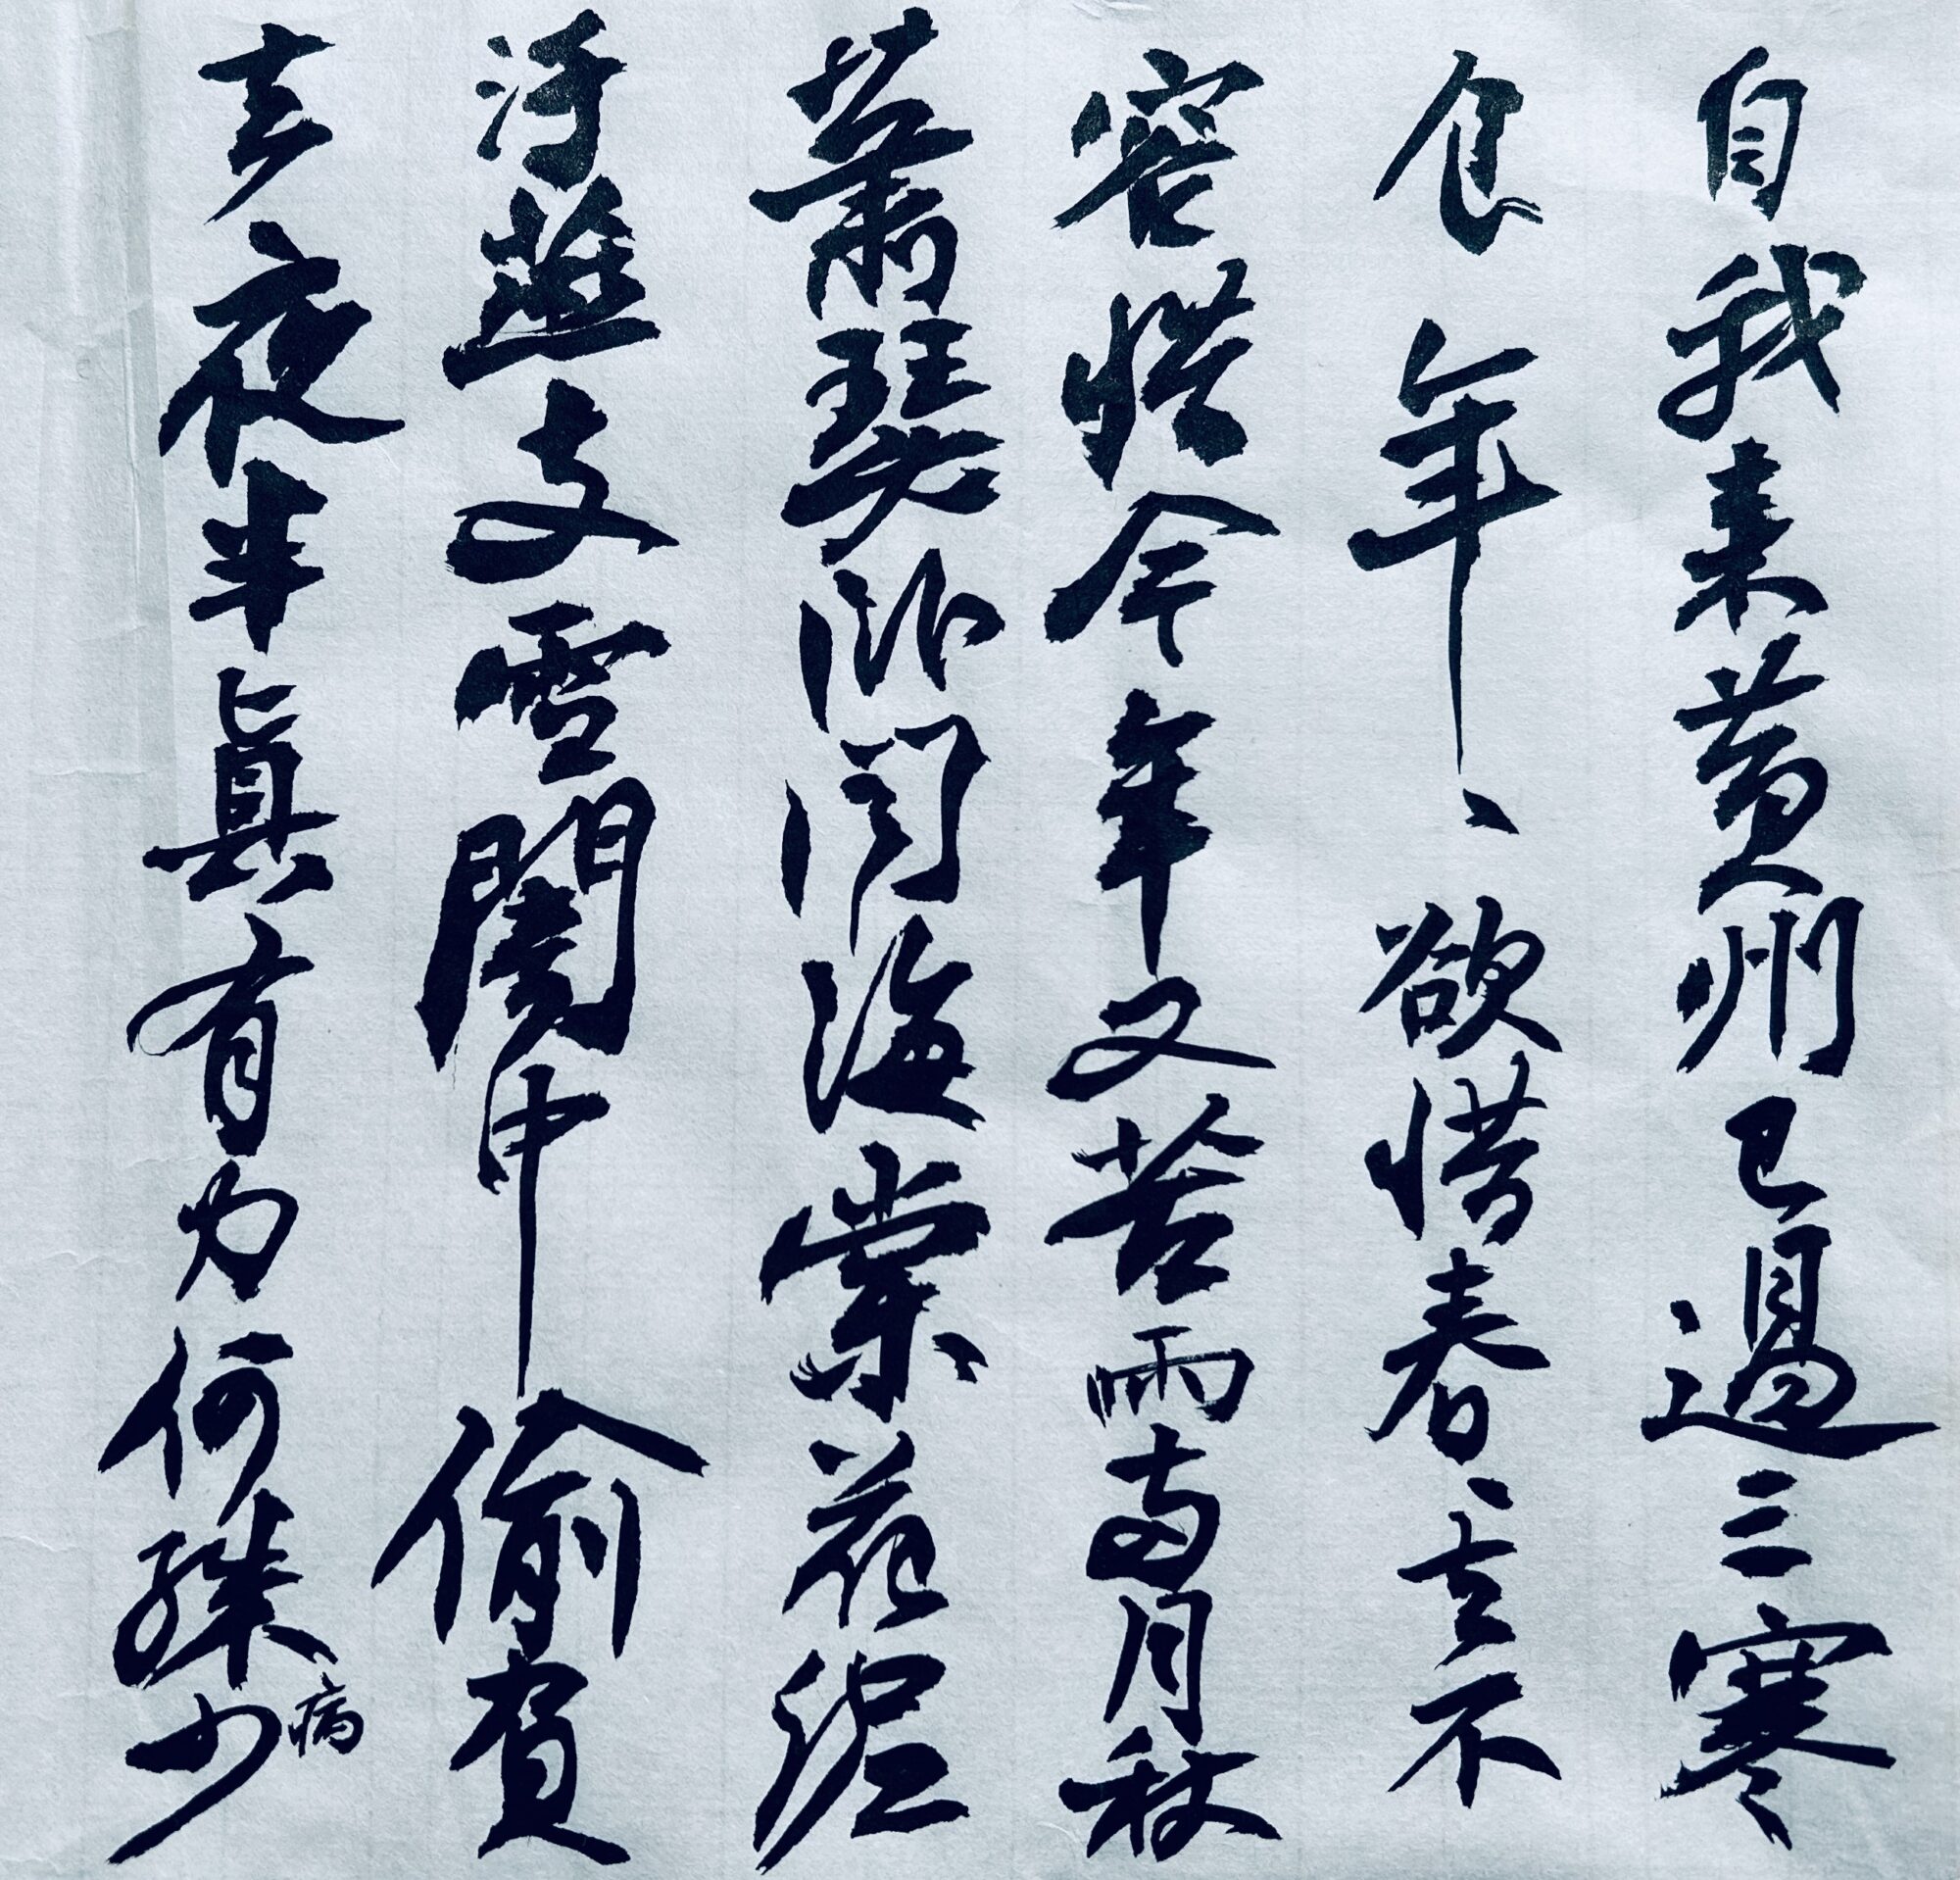 自我来黄州已過三寒
食年、欲惜春、去不
容惜今年又苦雨兩月秋
蕭瑟卧聞海棠花泥
汙燕支雪闇中偷負
去夜半真有力何殊少
病